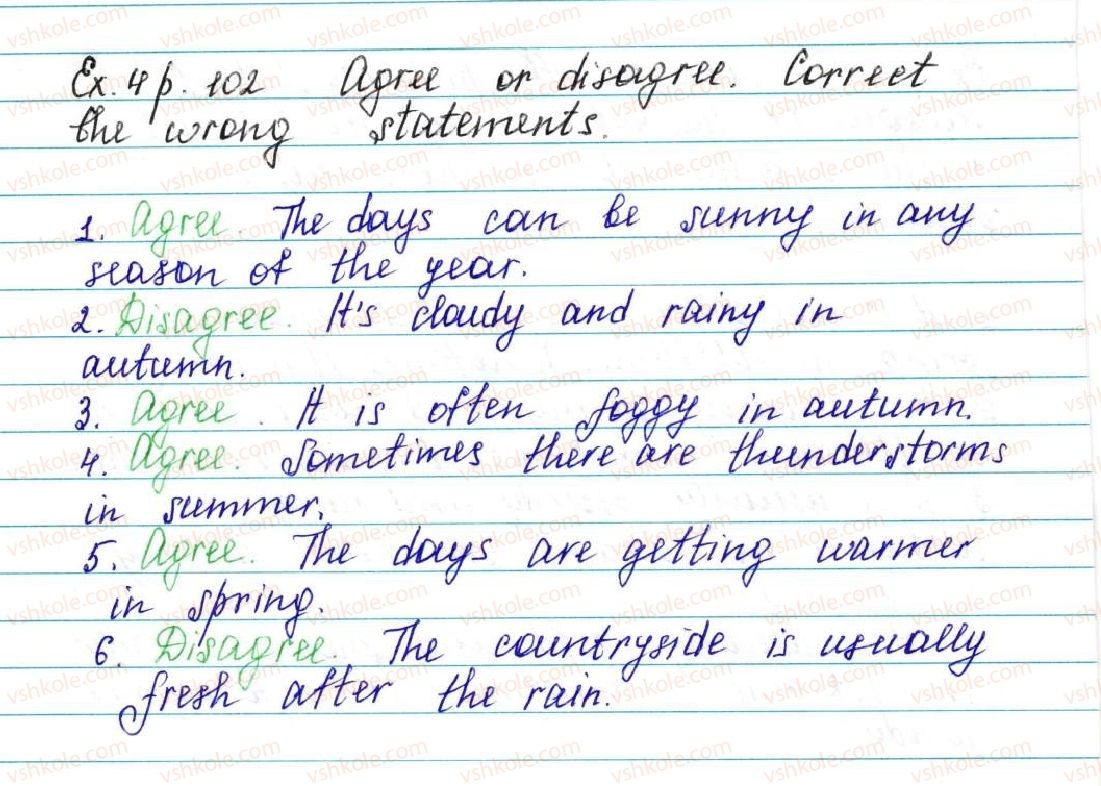 Ex. 4 p. 102 Agree or disagree. Correct
the wrong statements.
1. Agree. The days can be sunny in any
season of the year.
2. Disagree. It's cloudy and rainy in
autumn.
3. Agree. It is often foggy in autumn.
4. Agree. Sometimes there are thunderstorms
in summer.
5. Agree. The days are getting warmer
in spring.
6. Disagree. The countryside is usually
fresh after the rain.
vshkole.com